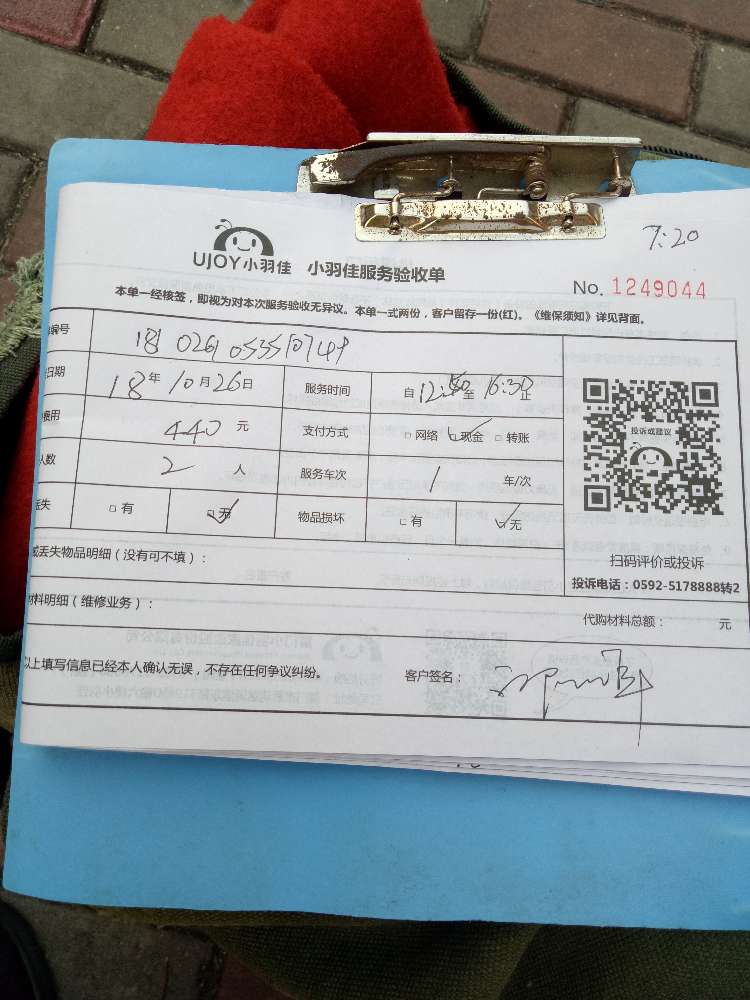 7:20
UJOY小羽佳 小羽佳服务验收单
No. 1249044
本单一经核签，即视为对本次服务验收无异议。本单一式两份，客户留存一份(红)。《维保须知》详见背面。
编号
日期 18年10月26日 服务时间 自 至16:30止
费用 440元 支付方式 □网络 ☑现金 □转账
人数 2人 服务车次 1 车/次
丢失 □有 ☑无 物品损坏 □有 ☑无
投诉或建议
扫码评价或投诉
投诉电话：0592-5178888转2
或丢失物品明细（没有可不填）：
材料明细（维修业务）：
代购材料总额： 元
以上填写信息已经本人确认无误，不存在任何争议纠纷。 客户签名：